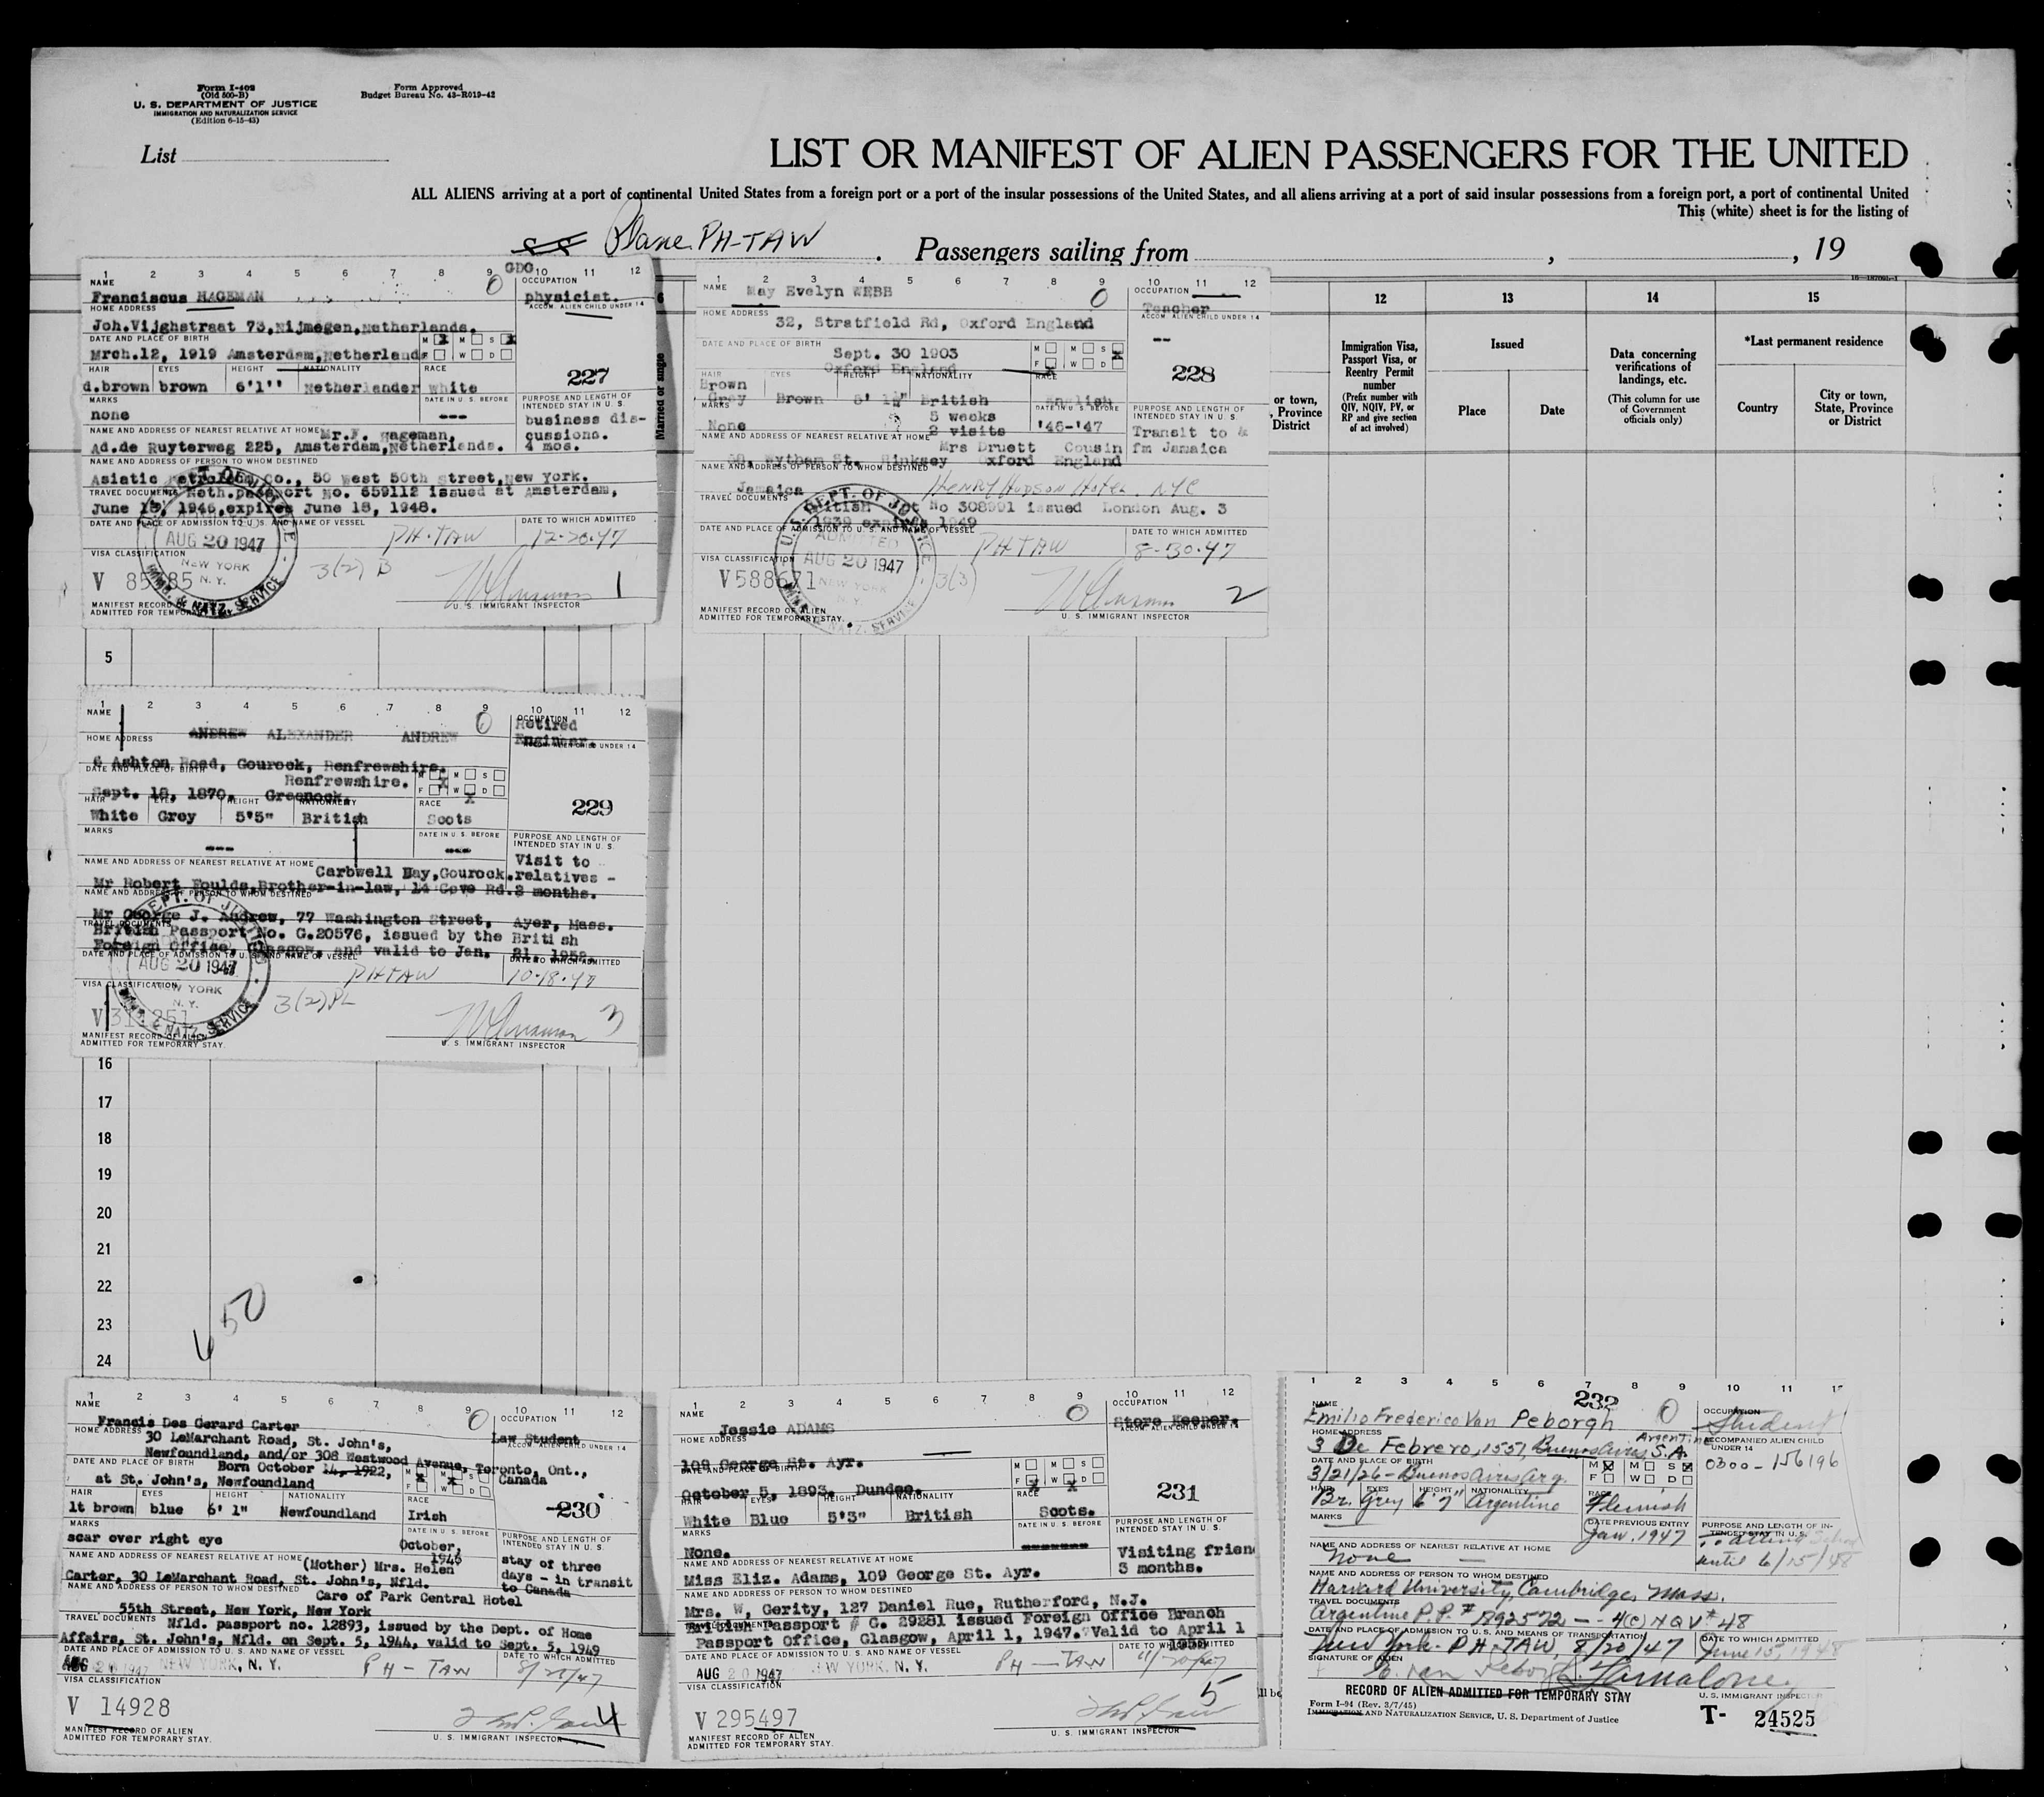 Form I-402
(Old 500-B)
U. S. DEPARTMENT OF JUSTICE
IMMIGRATION AND NATURALIZATION SERVICE
(Edition 6-15-43)
Form Approved
Budget Bureau No. 43-R019-42
List
LIST OR MANIFEST OF ALIEN PASSENGERS FOR THE UNITED
ALL ALIENS arriving at a port of continental United States from a foreign port or a port of the insular possessions of the United States, and all aliens arriving at a port of said insular possessions from a foreign port, a port of continental United
This (white) sheet is for the listing of
SS Plane PH-TAW . Passengers sailing from , , 19
1 2 3 4 5 6 7 8 9 10 11 12
GDG
NAME
Franciscus HAGEMAN
0
OCCUPATION
physicist.
ACCOM. ALIEN CHILD UNDER 14
HOME ADDRESS
Joh.Vijghstraat 73,Nijmegen,Netherlands.
DATE AND PLACE OF BIRTH
Mrch.12, 1919 Amsterdam,Netherlands
M M S
F W D
HAIR EYES HEIGHT NATIONALITY RACE
d.brown brown 6'1'' Netherlander white
227
MARKS
none
DATE IN U. S. BEFORE
---
PURPOSE AND LENGTH OF INTENDED STAY IN U. S.
business dis-
cussions.
4 mos.
NAME AND ADDRESS OF NEAREST RELATIVE AT HOME
Mr.F. Hageman,
Ad.de Ruyterweg 225, Amsterdam,Netherlands.
NAME AND ADDRESS OF PERSON TO WHOM DESTINED
Asiatic Petroleum Co., 50 West 50th Street,New York.
TRAVEL DOCUMENTS
Neth.passport No. 559112 issued at Amsterdam,
June 18, 1946,expires June 18, 1948.
DATE AND PLACE OF ADMISSION TO U. S. AND NAME OF VESSEL
PH-TAW
DATE TO WHICH ADMITTED
12-20-47
AUG 20 1947
NEW YORK
N. Y.
VISA CLASSIFICATION
3(2) B
MANIFEST RECORD OF ALIEN
ADMITTED FOR TEMPORARY STAY.
U. S. IMMIGRANT INSPECTOR
1
1 2 3 4 5 6 7 8 9 10 11 12
NAME
May Evelyn WEBB
0
OCCUPATION
Teacher
ACCOM. ALIEN CHILD UNDER 14
--
HOME ADDRESS
32, Stratfield Rd, Oxford England
DATE AND PLACE OF BIRTH
Sept. 30 1903
Oxford England
M M S
F W D
HAIR EYES HEIGHT NATIONALITY RACE
Brown
Gray Brown British English
228
MARKS
None
5 weeks
2 visits
DATE IN U. S. BEFORE
'46-'47
PURPOSE AND LENGTH OF INTENDED STAY IN U. S.
Transit to &
fm Jamaica
NAME AND ADDRESS OF NEAREST RELATIVE AT HOME
Mrs Druett Cousin
Wytham St. Hinksey Oxford England
NAME AND ADDRESS OF PERSON TO WHOM DESTINED
Jamaica HENRY HUDSON HOTEL. NYC
TRAVEL DOCUMENTS
British No 308991 issued London Aug. 3
1939 expires 1949
DATE AND PLACE OF ADMISSION TO U. S. AND NAME OF VESSEL
PHTAW
DATE TO WHICH ADMITTED
8-30-47
ADMITTED
AUG 20 1947
NEW YORK
N. Y.
VISA CLASSIFICATION
V588671
3(3)
MANIFEST RECORD OF ALIEN
ADMITTED FOR TEMPORARY STAY.
U. S. IMMIGRANT INSPECTOR
2
6
Married or single
or town, Province District
12 13 14 15
Immigration Visa, Passport Visa, or Reentry Permit number
(Prefix number with QIV, NQIV, PV, or RP and give section of act involved)
Issued
Place Date
Data concerning verifications of landings, etc.
(This column for use of Government officials only)
*Last permanent residence
Country
City or town, State, Province or District
5
1 2 3 4 5 6 7 8 9 10 11 12
NAME
ANDREW ALEXANDER ANDREW
0
OCCUPATION
Retired
Engineer.
ACCOM. ALIEN CHILD UNDER 14
HOME ADDRESS
6 Ashton Road, Gourock, Renfrewshire.
DATE AND PLACE OF BIRTH
Renfrewshire.
Sept. 18, 1870. Greenock.
M M S
F W D
HAIR EYES HEIGHT NATIONALITY RACE
White Grey 5'5" British Scots
229
MARKS
---
DATE IN U. S. BEFORE
---
PURPOSE AND LENGTH OF INTENDED STAY IN U. S.
Visit to
relatives -
2 months.
NAME AND ADDRESS OF NEAREST RELATIVE AT HOME
Cardwell Bay,Gourock.
Mr Robert Foulds,Brother-in-law, 14 Cove Rd.
NAME AND ADDRESS OF PERSON TO WHOM DESTINED
Mr George J. Andrew, 77 Washington Street, Ayer, Mass.
TRAVEL DOCUMENTS
British Passport No. G.20576, issued by the British
Foreign Office, Glasgow, and valid to Jan. 21, 1952.
DATE AND PLACE OF ADMISSION TO U. S. AND NAME OF VESSEL
PHTAW
DATE TO WHICH ADMITTED
10-18-47
AUG 20 1947
NEW YORK
N. Y.
VISA CLASSIFICATION
3(2)PL
MANIFEST RECORD OF ALIEN
ADMITTED FOR TEMPORARY STAY.
U. S. IMMIGRANT INSPECTOR
3
16
17
18
19
20
21
22
23
24
50
1 2 3 4 5 6 7 8 9 10 11 12
NAME
Francis Des Gerard Carter
0
OCCUPATION
Law Student
ACCOM. ALIEN CHILD UNDER 14
HOME ADDRESS
30 LeMarchant Road, St. John's,
Newfoundland, and/or 308 Westwood Avenue, Toronto, Ont.,
Canada
DATE AND PLACE OF BIRTH
Born October 14, 1922,
at St. John's, Newfoundland
M M S
F W D
HAIR EYES HEIGHT NATIONALITY RACE
lt brown blue 6' 1" Newfoundland Irish
230
MARKS
scar over right eye
DATE IN U. S. BEFORE
October,
1946
PURPOSE AND LENGTH OF INTENDED STAY IN U. S.
stay of three
days - in transit
to Canada
NAME AND ADDRESS OF NEAREST RELATIVE AT HOME
(Mother) Mrs. Helen
Carter, 30 LeMarchant Road, St. John's, Nfld.
NAME AND ADDRESS OF PERSON TO WHOM DESTINED
Care of Park Central Hotel
55th Street, New York, New York
TRAVEL DOCUMENTS
Nfld. passport no. 12893, issued by the Dept. of Home
Affairs, St. John's, Nfld. on Sept. 5, 1944, valid to Sept. 5, 1949
DATE AND PLACE OF ADMISSION TO U. S. AND NAME OF VESSEL
AUG 20 1947 NEW YORK, N. Y. PH-TAW
DATE TO WHICH ADMITTED
VISA CLASSIFICATION
V 14928
MANIFEST RECORD OF ALIEN
ADMITTED FOR TEMPORARY STAY.
U. S. IMMIGRANT INSPECTOR
4
1 2 3 4 5 6 7 8 9 10 11 12
NAME
Jessie ADAMS
0
OCCUPATION
Store Keeper.
ACCOM. ALIEN CHILD UNDER 14
HOME ADDRESS
109 George St. Ayr.
DATE AND PLACE OF BIRTH
October 5, 1893. Dundee.
M M S
F W D
HAIR EYES HEIGHT NATIONALITY RACE
White Blue 5'3" British Scots.
231
MARKS
None.
DATE IN U. S. BEFORE
-------
PURPOSE AND LENGTH OF INTENDED STAY IN U. S.
Visiting frien
3 months.
NAME AND ADDRESS OF NEAREST RELATIVE AT HOME
Miss Eliz. Adams, 109 George St. Ayr.
NAME AND ADDRESS OF PERSON TO WHOM DESTINED
Mrs. W, Gerity, 127 Daniel Rue, Rutherford, N.J.
TRAVEL DOCUMENTS
British Passport # G. 29281 issued Foreign Office Branch
Passport Office, Glasgow, April 1, 1947. Valid to April 1
DATE AND PLACE OF ADMISSION TO U. S. AND NAME OF VESSEL
AUG 20 1947 NEW YORK, N. Y. PH-TAW
DATE TO WHICH ADMITTED
11/20/47
VISA CLASSIFICATION
V 295497
MANIFEST RECORD OF ALIEN
ADMITTED FOR TEMPORARY STAY.
U. S. IMMIGRANT INSPECTOR
5
1 2 3 4 5 6 7 8 9 10 11
232
NAME
Emilio Frederico Van Peborgh
0
OCCUPATION
Student
HOME ADDRESS
3 De Febrero, 1557, Buenos Aires, S.A.
Argentine
ACCOMPANIED ALIEN CHILD UNDER 14
0300-156196
DATE AND PLACE OF BIRTH
3/21/26-Buenos Aires Arg.
M M S
F W D
HAIR EYES HEIGHT NATIONALITY RACE
Br. Grey 6'2" Argentine Flemish
MARKS
DATE PREVIOUS ENTRY
Jan. 1947
PURPOSE AND LENGTH OF INTENDED STAY IN U. S.
To attend School
until 6/15/48
NAME AND ADDRESS OF NEAREST RELATIVE AT HOME
None
NAME AND ADDRESS OF PERSON TO WHOM DESTINED
Harvard University, Cambridge, Mass.
TRAVEL DOCUMENTS
Argentine P.P.# 1892572 -- 4(c) NQV# 48
DATE AND PLACE OF ADMISSION TO U. S. AND MEANS OF TRANSPORTATION
New York - PH-TAW, 8/20/47
DATE TO WHICH ADMITTED
June 15, 1948
SIGNATURE OF ALIEN
E. van Peborgh
RECORD OF ALIEN ADMITTED FOR TEMPORARY STAY
U. S. IMMIGRANT INSPECTOR
Form I-94 (Rev. 3/7/45)
IMMIGRATION AND NATURALIZATION SERVICE, U. S. Department of Justice
T- 24525